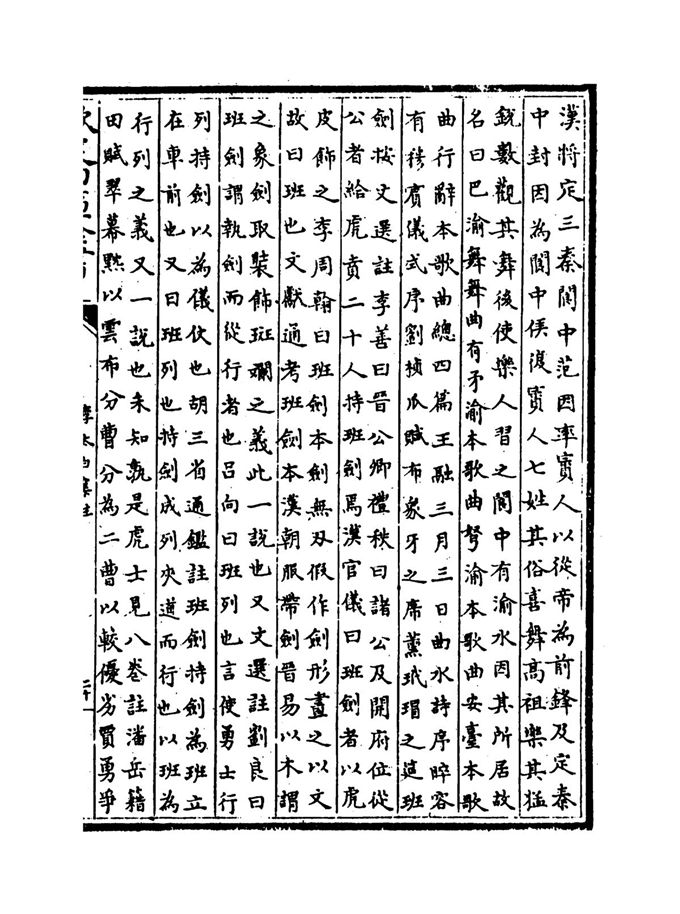 漢將定三秦閬中范因率賨人以從帝為前鋒及定秦
中封因為閬中侯復賨人七姓其俗喜舞高祖樂其猛
銳數觀其舞後使樂人習之閬中有渝水因其所居故
名曰巴渝舞舞曲有矛渝本歌曲弩渝本歌曲安臺本歌
曲行辭本歌曲總四篇王融三月三日曲水詩序睟容
有穆賓儀式序劉楨瓜賦布象牙之席薰玳瑁之筵班
劍按文選註李善曰晉公卿禮秩曰諸公及開府位從
公者給虎賁二十人持班劍焉漢官儀曰班劍者以虎
皮飾之李周翰曰班劍本劍無刃假作劍形畫之以文
故曰班也文獻通考班劍本漢朝服帶劍晉易以木謂
之象劍取裝飾斑斕之義此一說也又文選註劉良曰
班劍謂執劍而從行者也呂向曰班列也言使勇士行
列持劍以為儀仗也胡三省通鑑註班劍持劍為班立
在車前也又曰班列也持劍成列夾道而行也以班為
行列之義又一說也未知孰是虎士見八卷註潘岳籍
田賦翠幕黕以雲布分曹分為二曹以較優劣賈勇爭